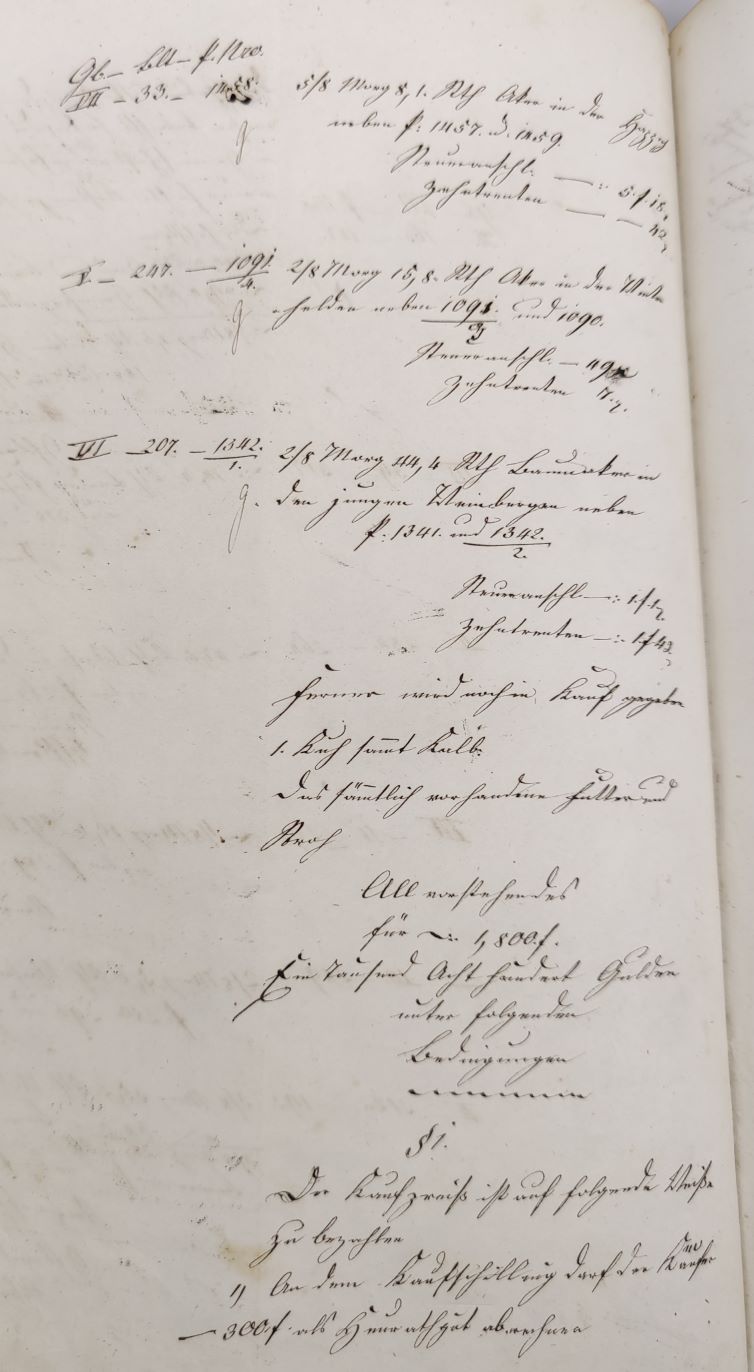 Gb. — Blt — P. Nro.
VII — 33. — 1458. 5/8 Morg 8,1. Rth Aker in der
neben P. 1457. u. 1459.
Steueranschl. — : 5.f.18.
Zehntrenten — — 42
V — 247. — 1091./4. 2/8 Morg 15,8. Rth Aker in der Winter
halden neben 1091./3 und 1090.
Steueranschl. — 49
Zehntrenten 17.
VI — 207. — 1342./1. 2/8 Morg 44,4 Rth Baumaker in
den jungen Weinbergen neben
P. 1341. und 1342./2.
Steueranschl. — : 1.f.
Zehntrenten — : 1f 42
Ferner wird noch in Kauf gegeben
1. Kuh sammt Kalb.
Das sämmtlich vorhandene Futter und
Stroh
All vorstehendes
für —: 1,800.f.
Ein Tausend Acht hundert Gulden
unter folgenden
Bedingungen
§ 1.
Der Kaufpreiß ist auf folgende Weiße
zu bezahlen
1) An dem Kaufschilling darf der Käufer
— 300f als Heurathgut abrechnen